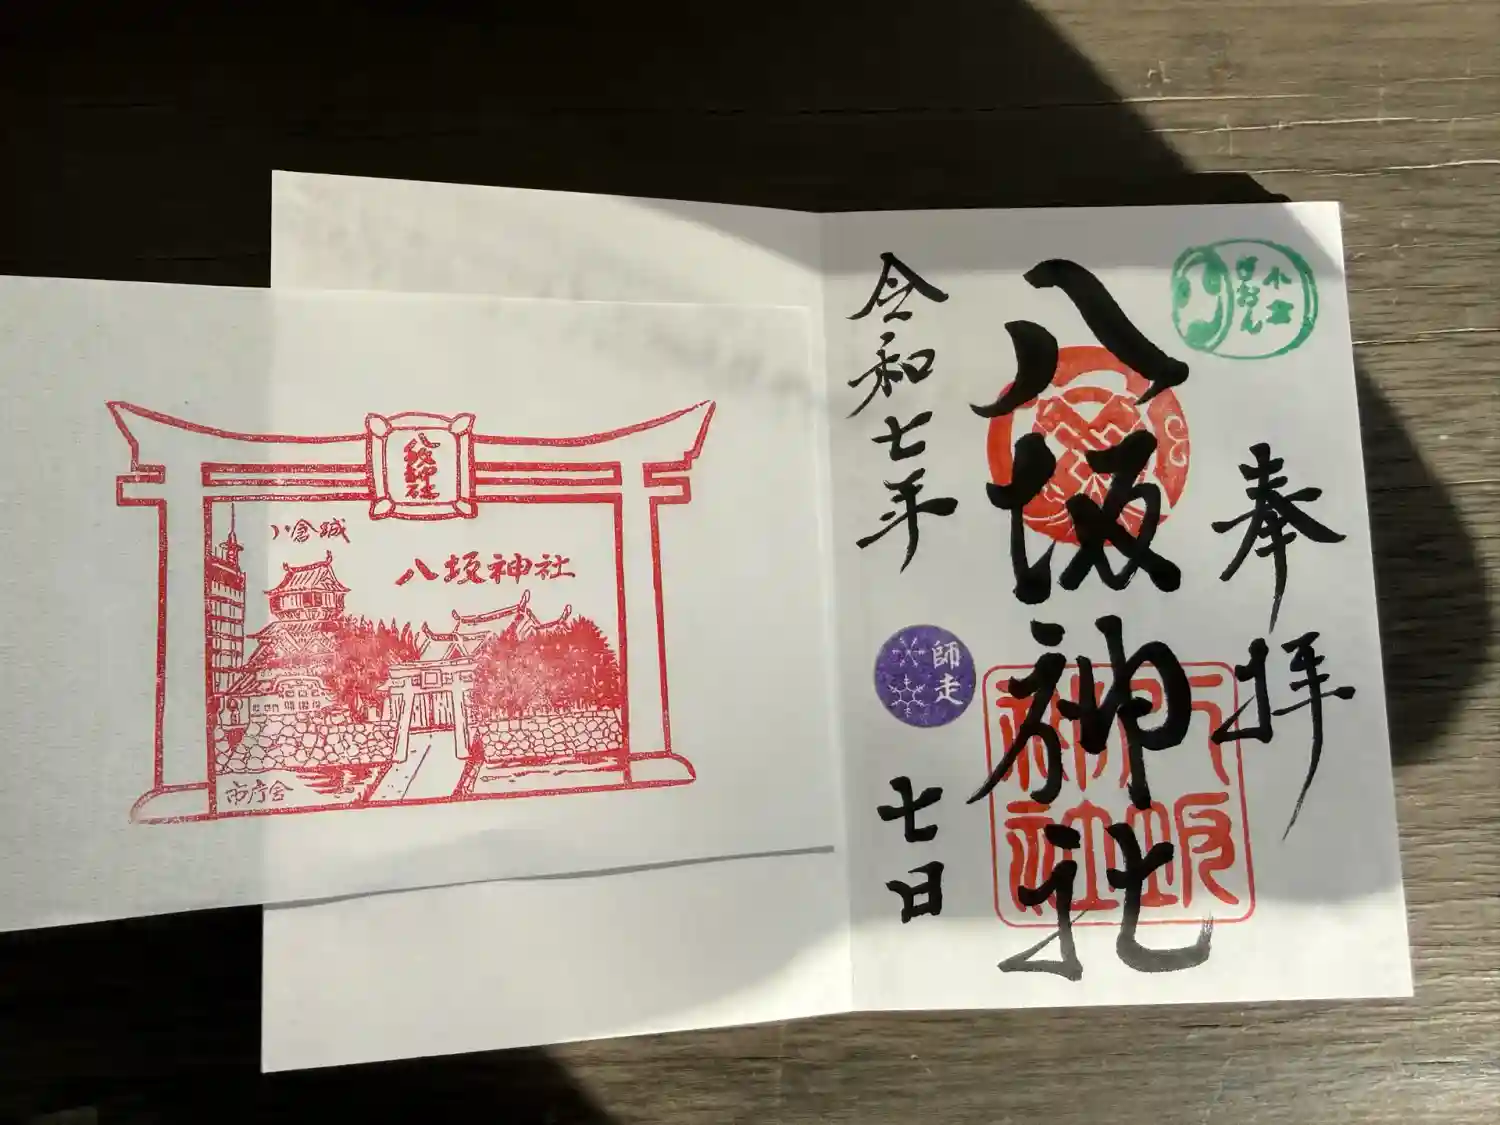 奉拝
八坂神社
八坂神社
小倉
ぎおん
令和七年
師走
七日
八坂神社
小倉城
八坂神社
市庁舎